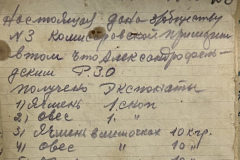 Настоящая дана Агрусству
№3 Комиссаровской Пришиби
в том что Александровель-
дским РЗО
получено Экспонаты
1) Ячмень 1 сноп
2) Овес 1 "
3) Ячмень в мешочках 10 кгр.
4) Овес " " 10 "